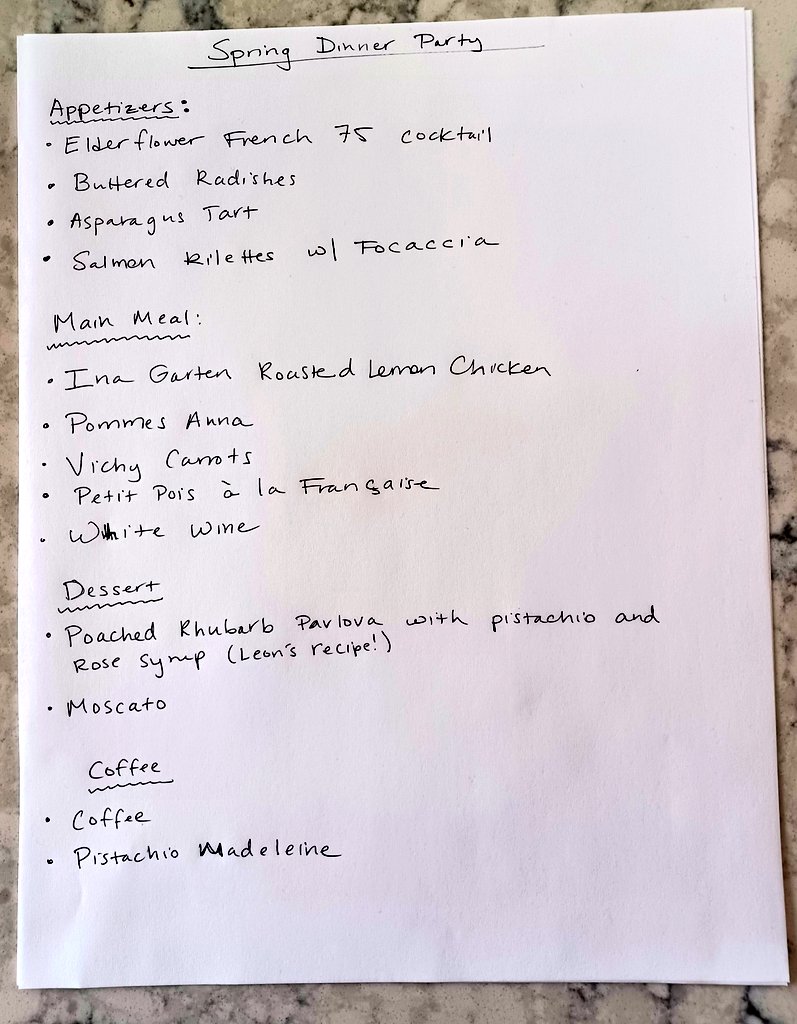 Spring Dinner Party
Appetizers:
• Elderflower French 75 cocktail
• Buttered Radishes
• Asparagus Tart
• Salmon Rilettes w/ Focaccia
Main Meal:
• Ina Garten Roasted Lemon Chicken
• Pommes Anna
• Vichy Carrots
• Petit Pois à la Française
• White Wine
Dessert
• Poached Rhubarb Pavlova with pistachio and
Rose syrup (Leon's recipe!)
• Moscato
Coffee
• Coffee
• Pistachio Madeleine